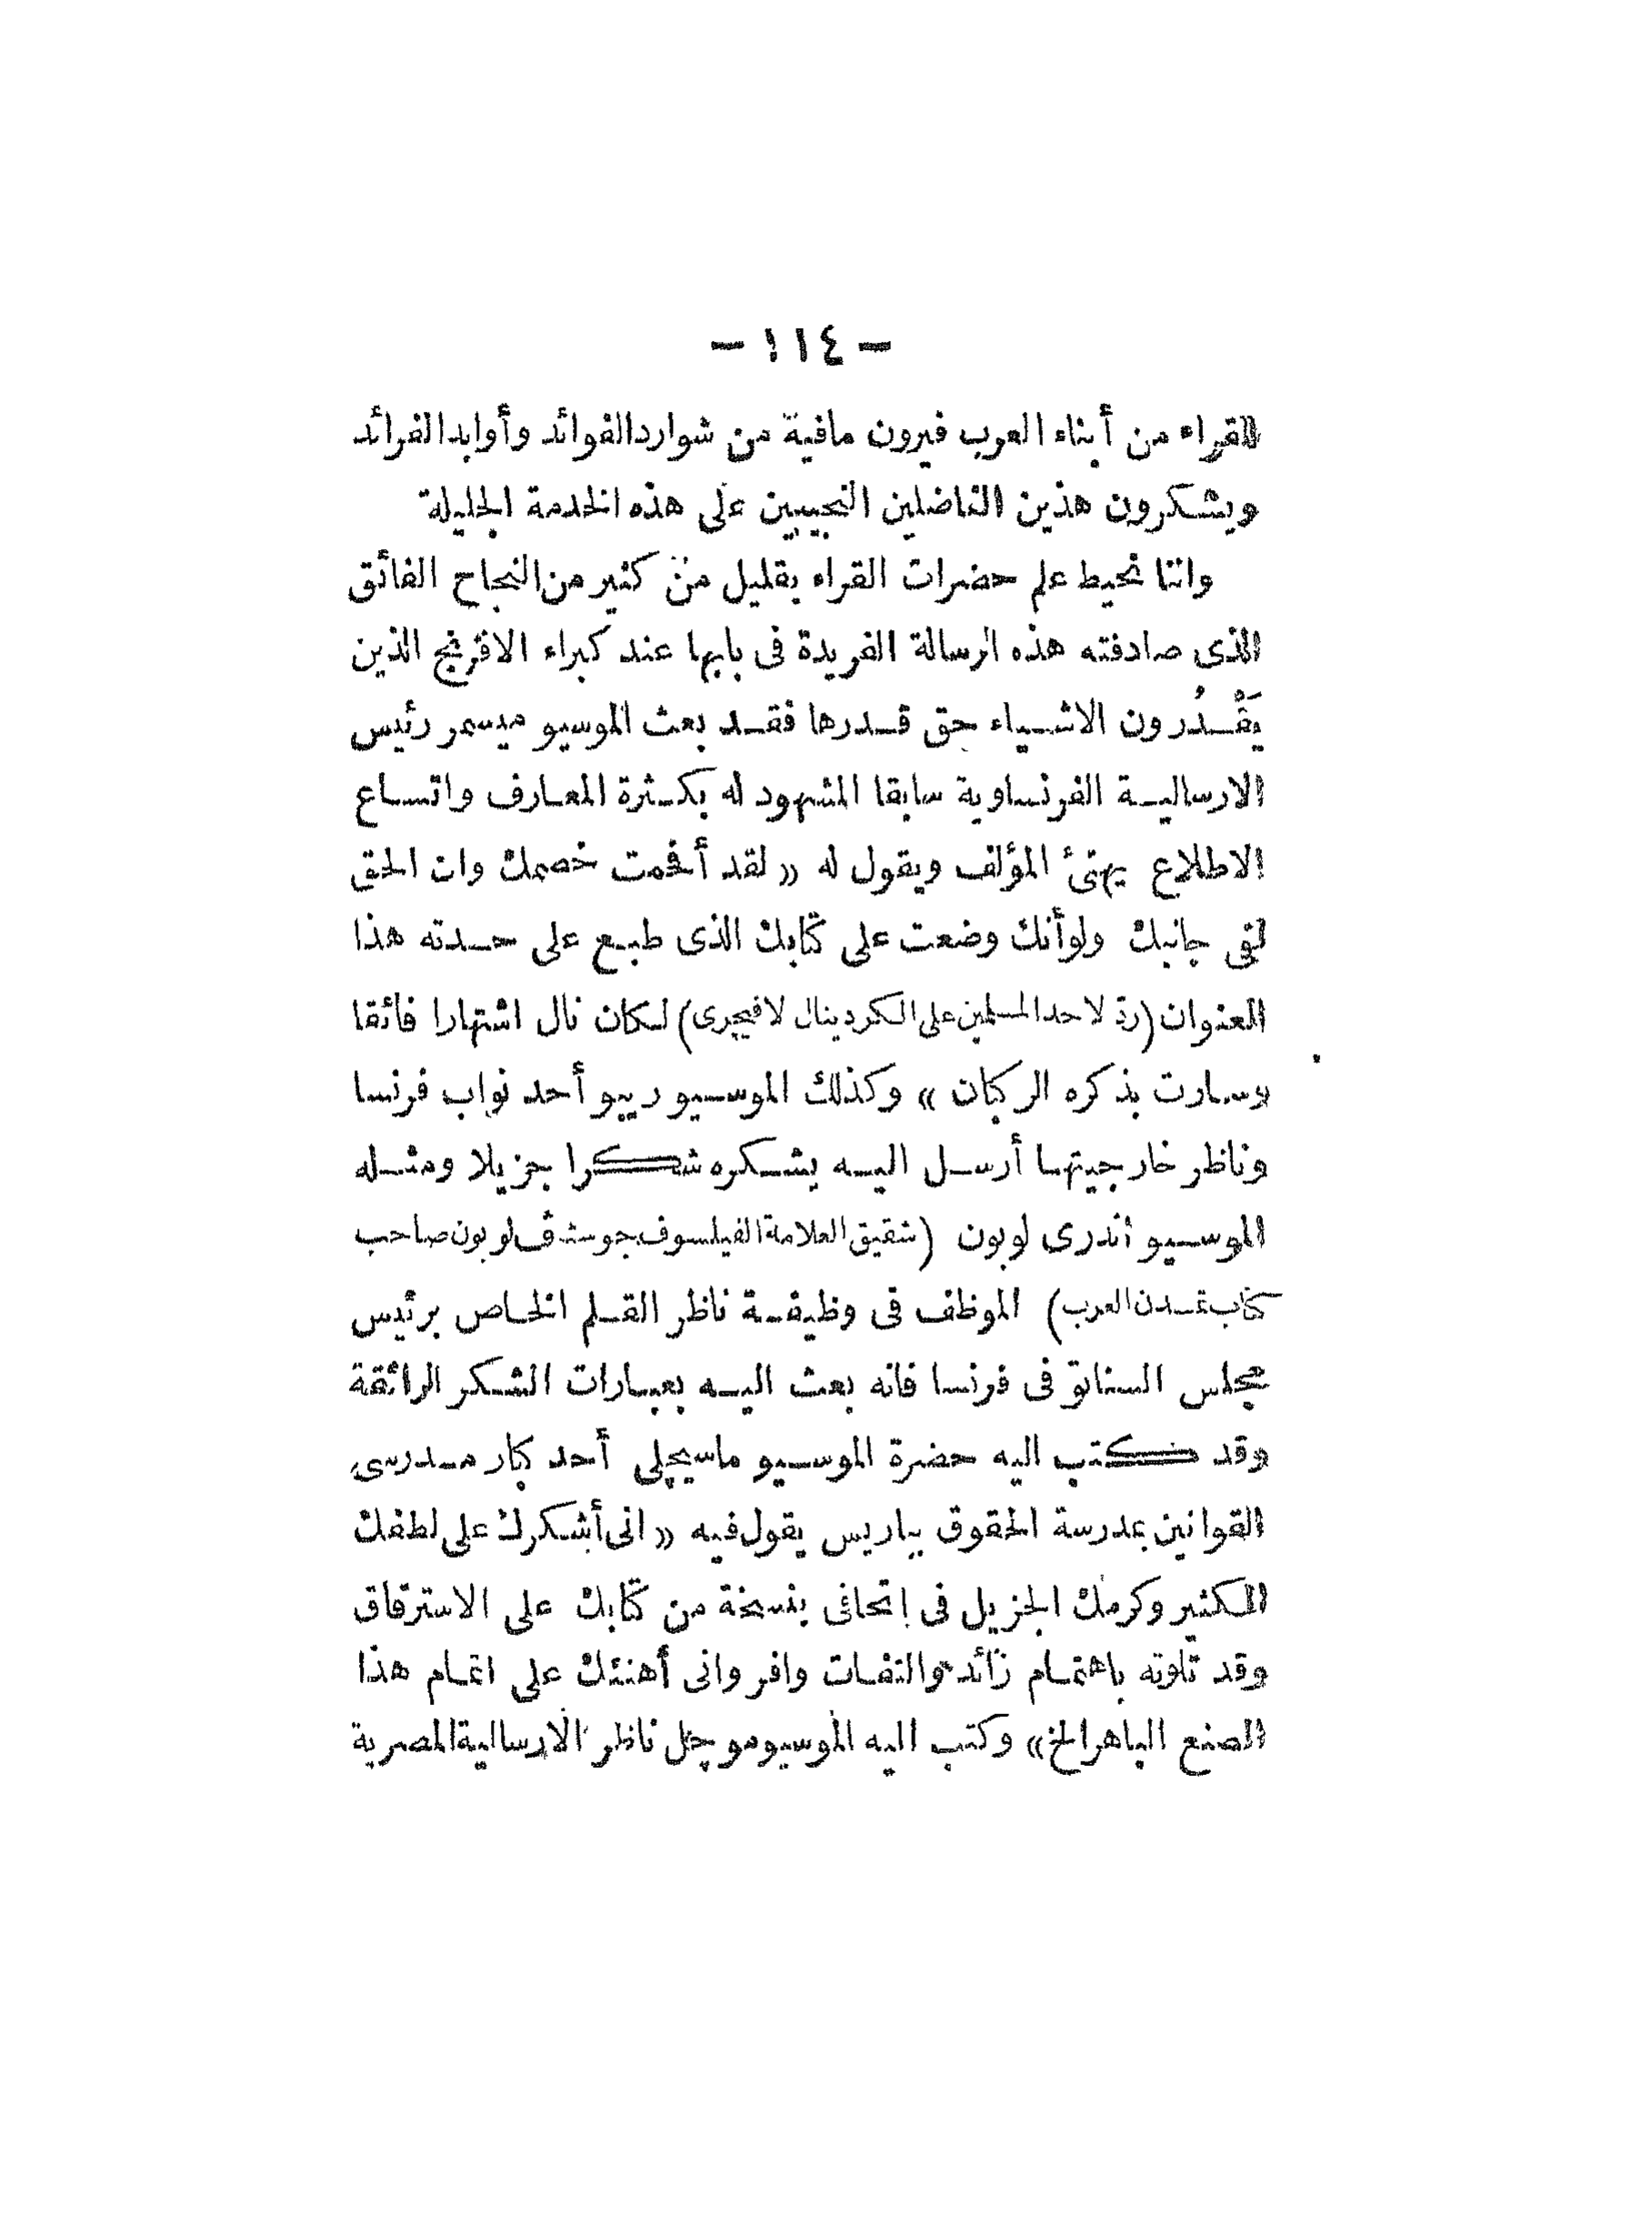 - ١١٤ -
للقراء من أبناء العرب فيرون مافية من شواردالفوائد وأوابدالفرائد
ويشكرون هذين الفاضلين النجيبين على هذه الخدمة الجليلة
واننا نحيط علم حضرات القراء بقليل من كثير من النجاح الفائق
الذى صادفته هذه الرسالة الفريدة فى بابها عند كبراء الافرنج الذين
يَقْدُرون الاشياء حق قدرها فقد بعث الموسيو ميسمر رئيس
الارسالية الفرنساوية سابقا المشهود له بكثرة المعارف واتساع
الاطلاع يهنئ المؤلف ويقول له « لقد أفحمت خصمك وان الحق
لفى جانبك ولوأنك وضعت على كتابك الذى طبع على حدته هذا
العنوان (ردّ لاحدالمسلمين على الكردينال لافيچرى) لكان نال اشتهارا فائقا
وسارت بذكره الركبان » وكذلك الموسيو ريبو أحد نواب فرنسا
وناظر خارجيتها أرسل اليه يشكره شكرا جزيلا ومثله
الموسيو اندرى لوبون (شقيق العلامة الفيلسوف جوستاف لوبون صاحب
كتاب تمدن العرب) الموظف فى وظيفة ناظر القلم الخاص برئيس
مجلس السناتو فى فرنسا فانه بعث اليه بعبارات الشكر الرائقة
وقد كتب اليه حضرة الموسيو ماسيچلى أحد كبار مدرسى
القوانين بمدرسة الحقوق بباريس يقول فيه « انى أشكرك على لطفك
الكثير وكرمك الجزيل فى إتحافى بنسخة من كتابك على الاسترقاق
وقد تلوته باهتمام زائد والتفات وافر وانى أهنئك على اتمام هذا
الصنع الباهر الخ» وكتب اليه الموسيو موچل ناظر الارسالية المصرية